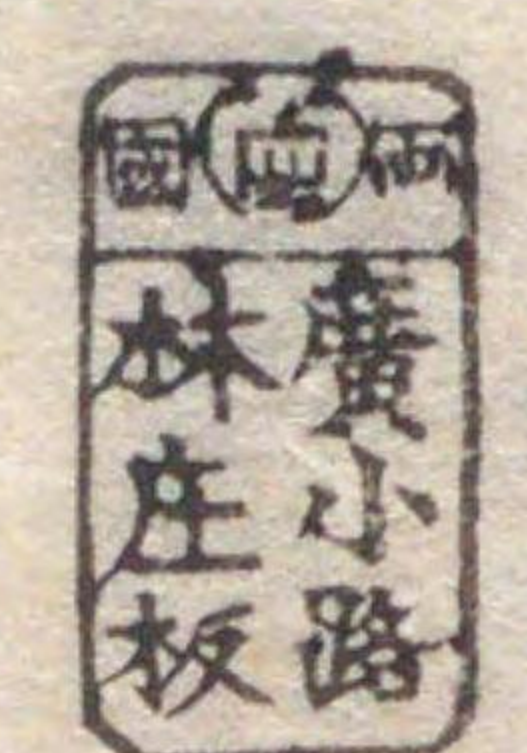 両國
廣小路
林庄板